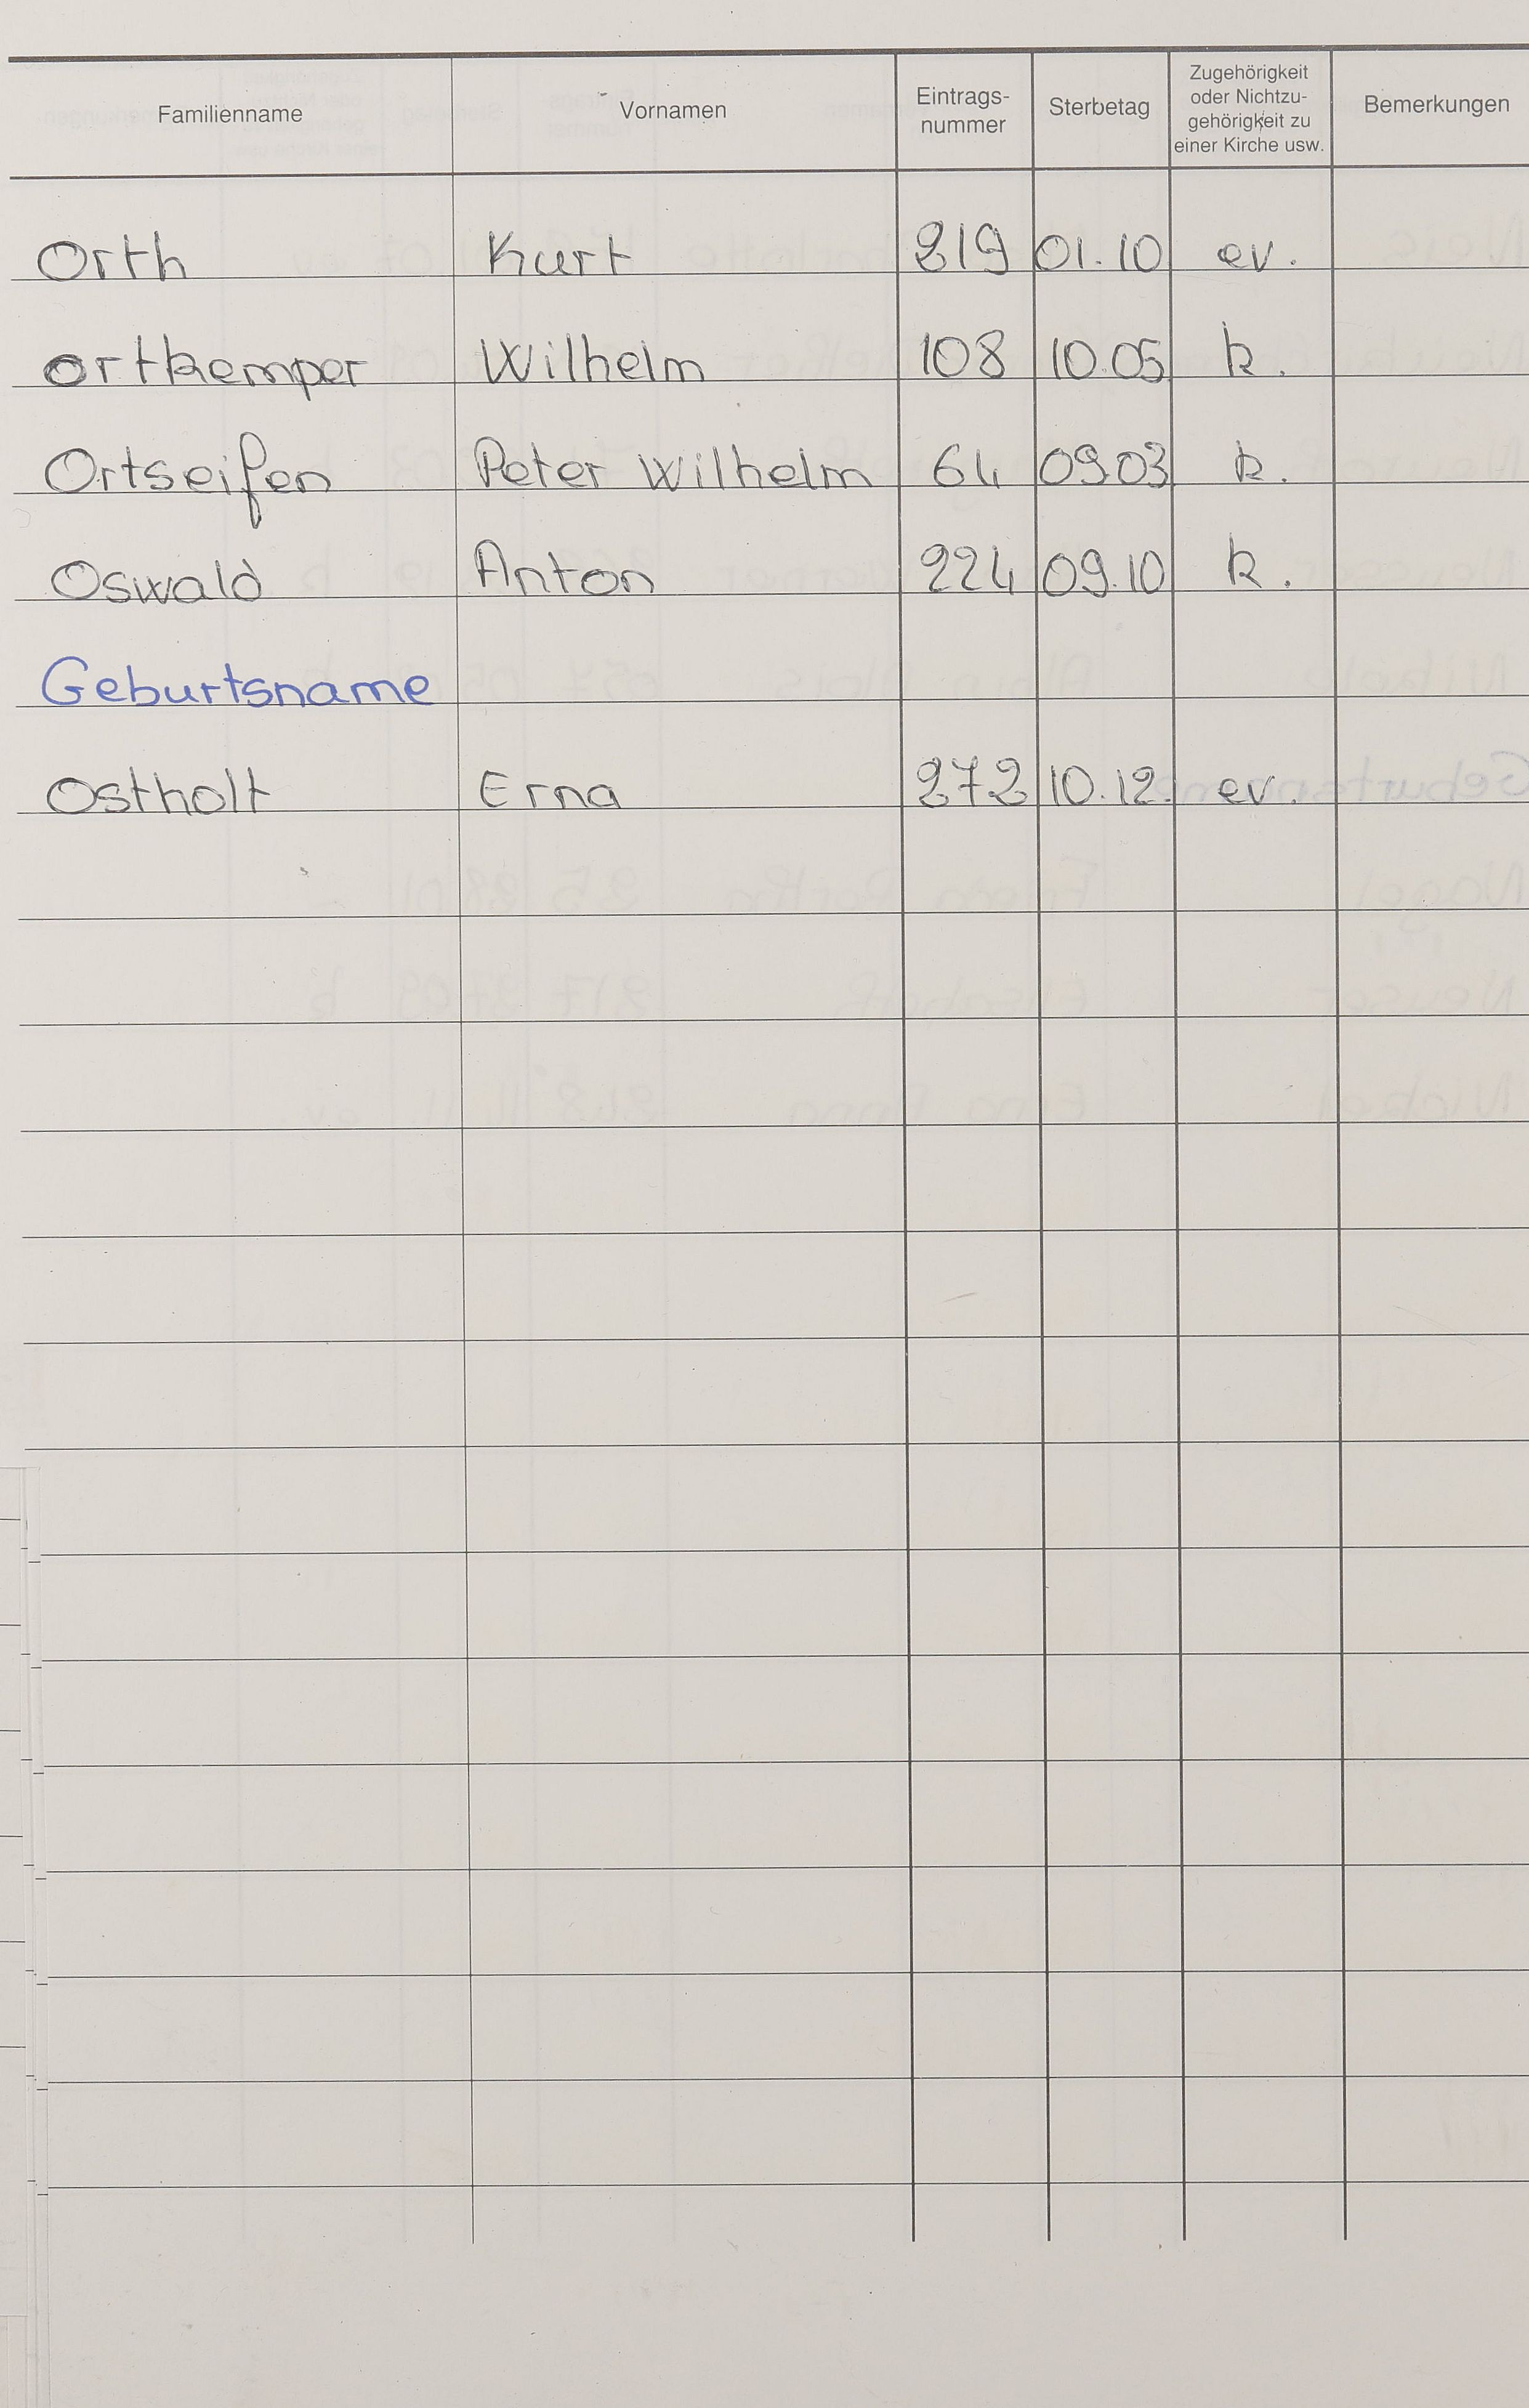 Familienname Vornamen Eintrags-nummer Sterbetag Zugehörigkeit oder Nichtzu-gehörigkeit zu einer Kirche usw. Bemerkungen
Orth Kurt 219 01.10 ev.
Ortkemper Wilhelm 108 10.05 k.
Ortseifen Peter Wilhelm 64 09.03 k.
Oswald Anton 224 09.10 k.
Geburtsname
Ostholt Erna 272 10.12. ev.